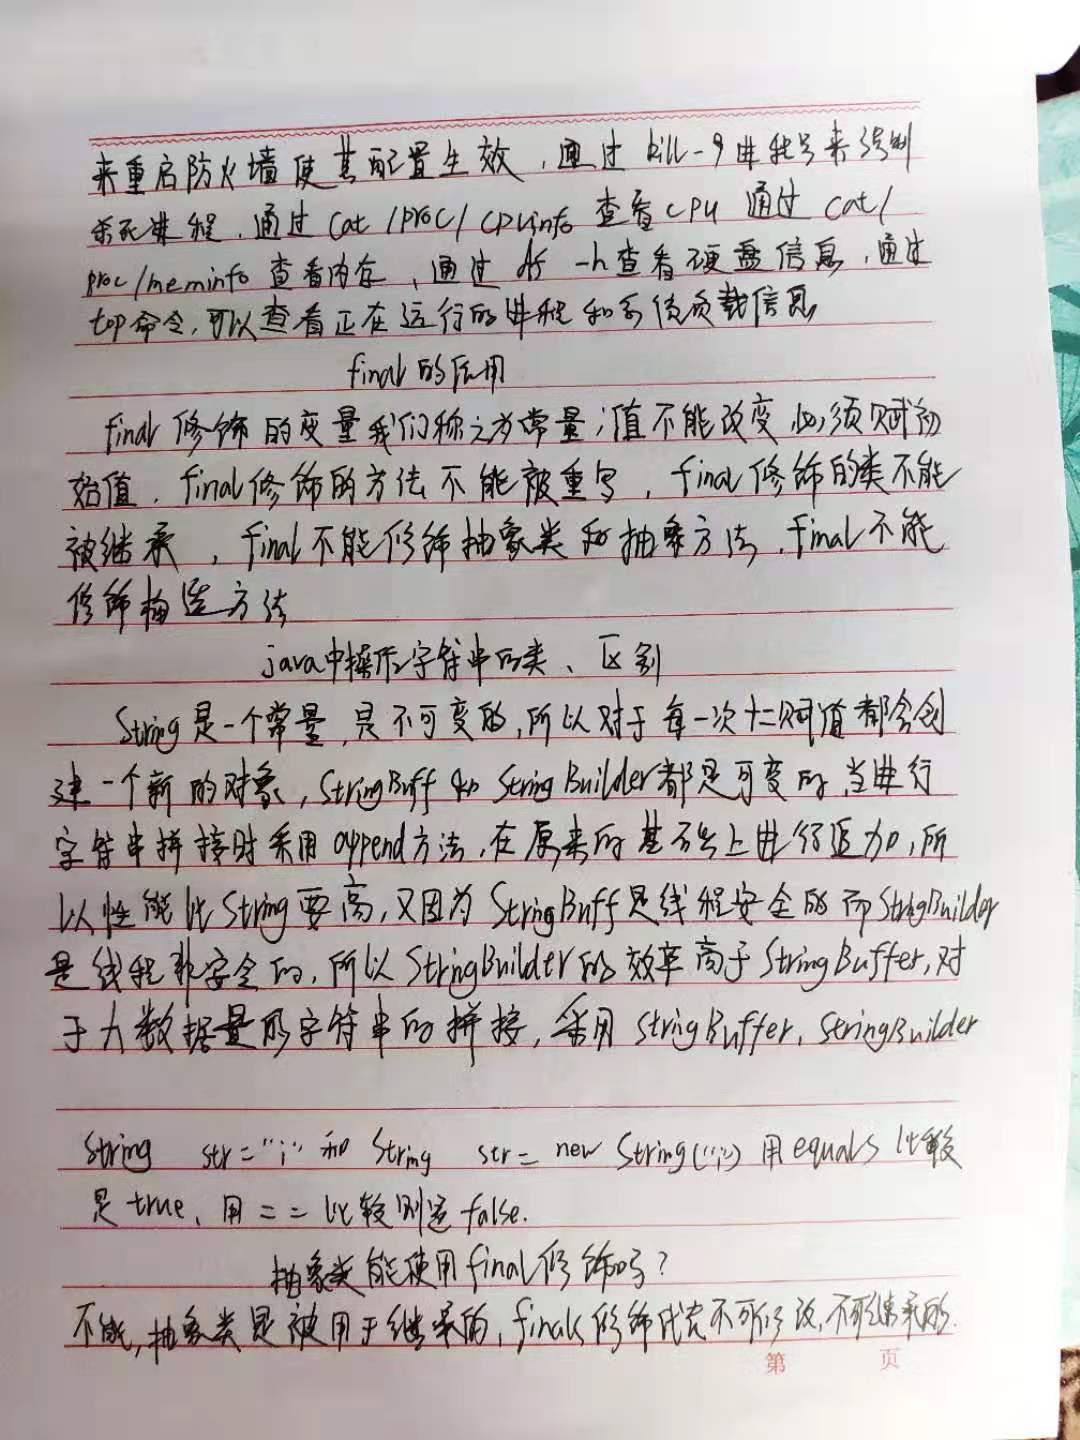 来重启防火墙使其配置生效，通过kill-9进程号来强制
杀死进程，通过cat /proc/cpuinfo 查看CPU 通过cat/
proc/meminfo 查看内存，通过df -h查看硬盘信息，通过
top命令，可以查看正在运行的进程和系统负载信息
final的应用
final修饰的变量我们称之为常量，值不能改变必须赋初
始值，final修饰的方法不能被重写，final修饰的类不能
被继承，final不能修饰抽象类和抽象方法，final不能
修饰构造方法
java中操作字符串的类、区别
String是一个常量，是不可变的，所以对于每一次+=赋值都会创
建一个新的对象，StringBuff和StringBuilder都是可变的，当进行
字符串拼接时采用append方法，在原来的基础上进行追加，所
以性能比String要高，又因为StringBuff是线程安全的而StringBuilder
是线程非安全的，所以StringBuilder的效率高于StringBuffer，对
于大数据量的字符串的拼接，采用StringBuffer，StringBuilder
String str="i" 和 String str= new String("i") 用equals比较
是true、用==比较则是false.
抽象类能使用final修饰吗？
不能，抽象类是被用于继承的，final修饰代表不可修改，不可继承的.
第 页